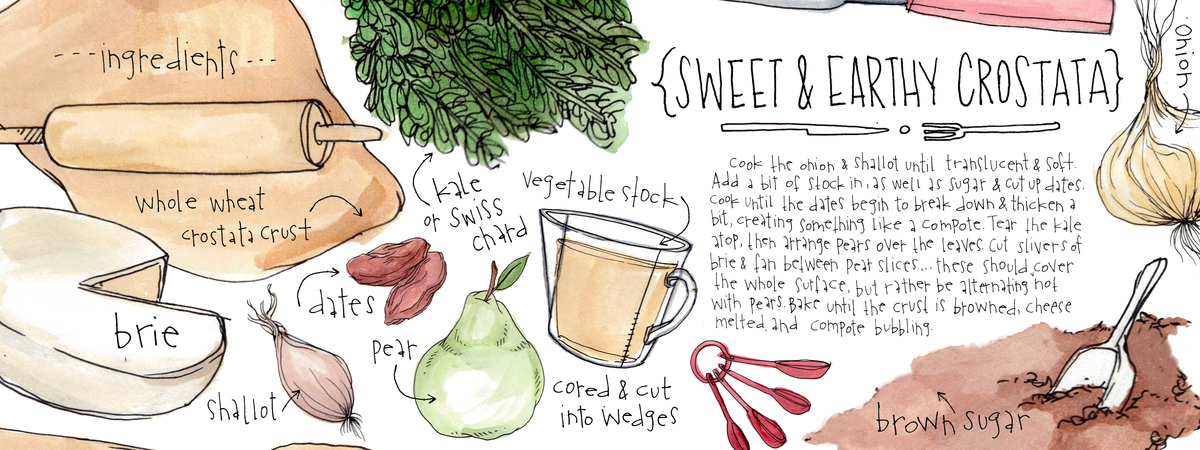 ---ingredients---
whole wheat
crostata crust
brie
shallot
dates
kale
or swiss
chard
pear
vegetable stock
cored & cut
into wedges
{SWEET & EARTHY CROSTATA}
Cook the onion & shallot until translucent & soft.
Add a bit of stock in, as well as sugar & cut up dates.
Cook until the dates begin to break down & thicken a
bit, creating something like a compote. Tear the kale
atop, then arrange pears over the leaves. Cut slivers of
brie & fan between pear slices... these should cover
the whole surface, but rather be alternating hot
with pears. Bake until the crust is browned, cheese
melted, and compote bubbling.
onion
brown sugar